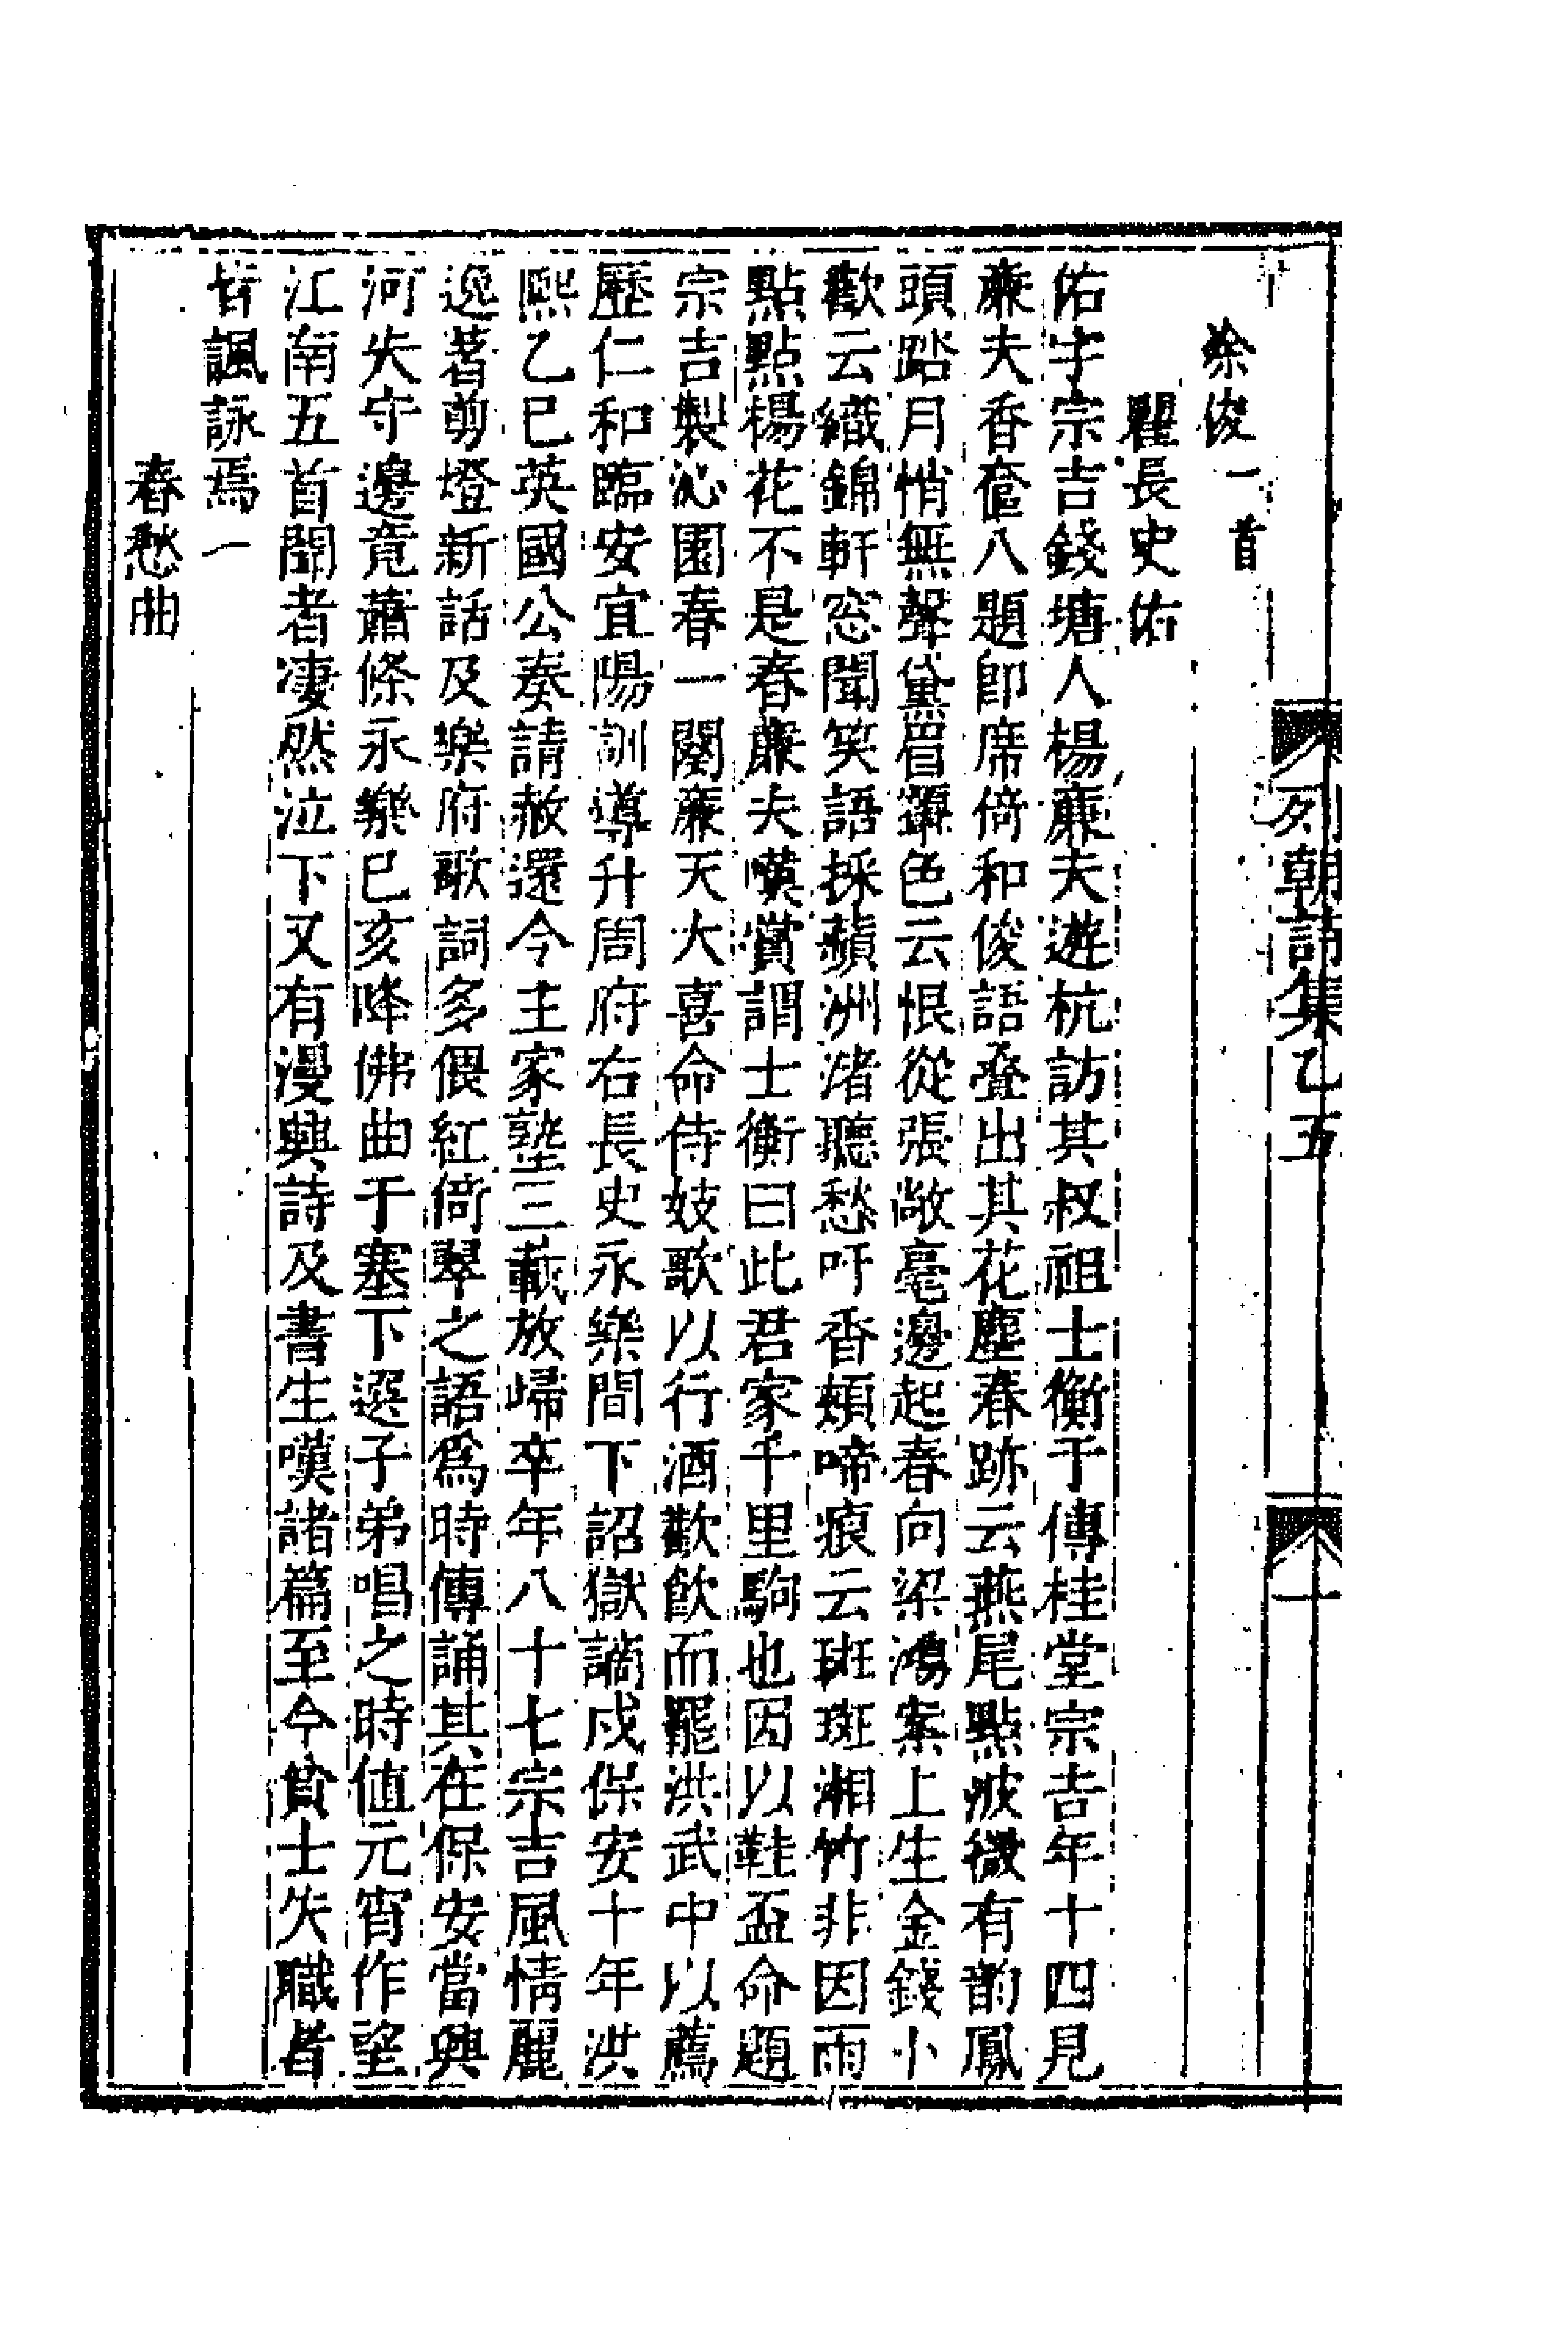 列朝詩集乙五
一
徐俊一首
瞿長史佑
佑字宗吉錢塘人楊廉夫遊杭訪其叔祖士衡于傳桂堂宗吉年十四見
廉夫香奩八題卽席倚和俊語疊出其花塵春跡云燕尾點波微有韵鳳
頭踏月悄無聲黛眉顰色云恨從張敞毫邊起春向梁鴻案上生金錢卜
歡云織錦軒窓聞笑語採蘋洲渚聽愁吁香頰啼痕云斑斑湘竹非因雨
點點楊花不是春廉夫嘆賞謂士衡曰此君家千里駒也因以鞋盃命題
宗吉製沁園春一闋廉夫大喜命侍妓歌以行酒歡飮而罷洪武中以薦
歷仁和臨安宜陽訓導升周府右長史永樂間下詔獄謫戍保安十年洪
熙乙巳英國公奏請赦還令主家塾三載放歸卒年八十七宗吉風情麗
逸著剪燈新話及樂府歌詞多偎紅倚翠之語爲時傳誦其在保安當興
河失守邊竟蕭條永樂己亥降佛曲于塞下選子弟唱之時値元宵作望
江南五首聞者凄然泣下又有漫興詩及書生嘆諸篇至今貧士失職者
皆諷詠焉一
春愁曲